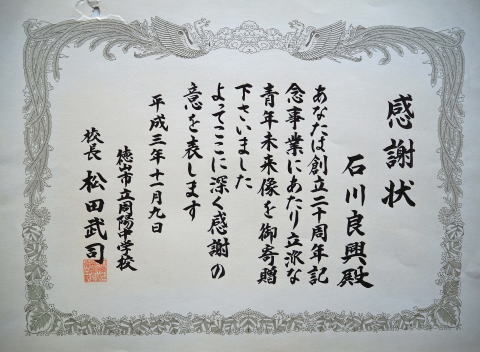 感謝状
石川良興殿
あなたは創立二十周年記
念事業にあたり立派な
青年未来像を御寄贈
下さいました
よってここに深く感謝の
意を表します
平成三年十一月九日
徳山市立周陽中学校
校長 松田武司